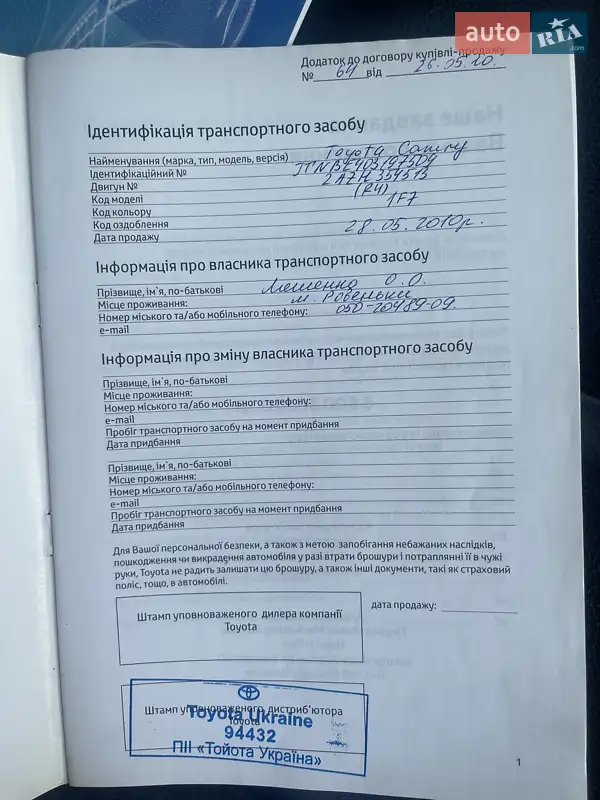 auto RIA.com
Додаток до договору купівлі-продажу
№ 64 від 26.05.10.
Ідентифікація транспортного засобу
Найменування (марка, тип, модель, версія) Toyota Camry
Ідентифікаційний №
Двигун № 2AZH354513
Код моделі (R4)
Код кольору 1F7
Код оздоблення
Дата продажу 28.05.2010р.
Інформація про власника транспортного засобу
Прізвище, ім`я, по-батькові О.О.
Місце проживання: м. Ровеньки
Номер міського та/або мобільного телефону: 050-20489-09.
e-mail
Інформація про зміну власника транспортного засобу
Прізвище, ім`я, по-батькові
Місце проживання:
Номер міського та/або мобільного телефону:
e-mail
Пробіг транспортного засобу на момент придбання
Дата придбання
Прізвище, ім`я, по-батькові
Місце проживання:
Номер міського та/або мобільного телефону:
e-mail
Пробіг транспортного засобу на момент придбання
Дата придбання
Для Вашої персональної безпеки, а також з метою запобігання небажаних наслідків,
пошкодження чи викрадення автомобіля у разі втрати брошури і потраплянні її в чужі
руки, Toyota не радить залишати цю брошуру, а також інші документи, такі як страховий
поліс, тощо, в автомобілі.
Штамп уповноваженого дилера компанії
Toyota
дата продажу:
Штамп уповноваженого дистриб'ютора
Toyota
Toyota Ukraine
94432
ПІІ «Тойота Україна»
1